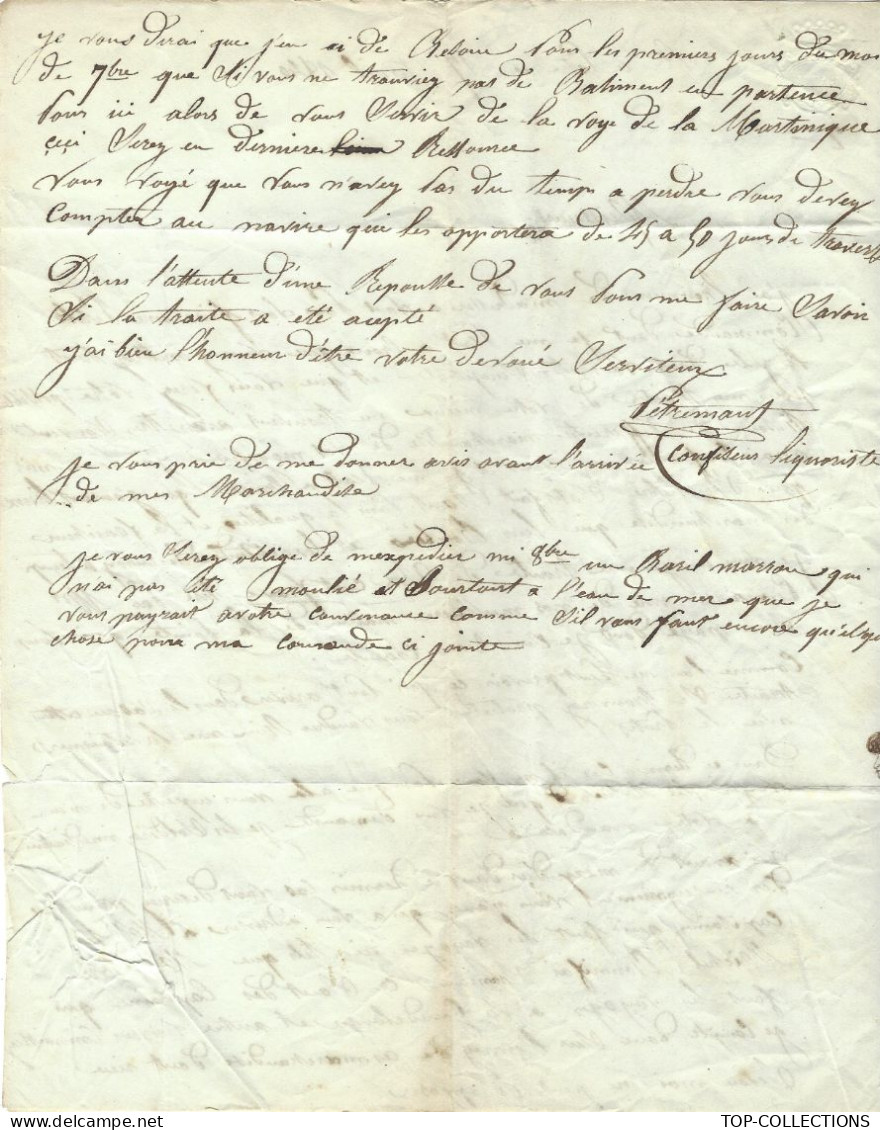 je vous dirai que j'en ai de Besoin pour les premiers jours du moi
de 7bre que Si vous ne trouvrez pas de Batiment en partence
pour ici alors de vous Servir de la voye de la Martinique
ceçi Serez en derniere Ressource
vous voyé que vous n'avez pas du temps a perdre vous devez
compter au navire qui les apportera de 45 a 50 jours de
Dans l'attente d'une Reponsse de vous pour me faire Savoir
Si la traite a été acepté
j'ai bien l'honneur d'être votre devoué Serviteur
Pétremant
Confiseur liquoriste
je vous prie de me donner avis avant l'arrivée
de mes Marchandise
je vous Serez oblige de mexpedier mi 8bre un Baril marron qui
nai pas été moulié et Sourtout a l'eau de mer que je
vous payrait avotre convenance comme S'il vous faut encore qu'elque
chose pour ma comande ci jointe
TOP-COLLECTIONS